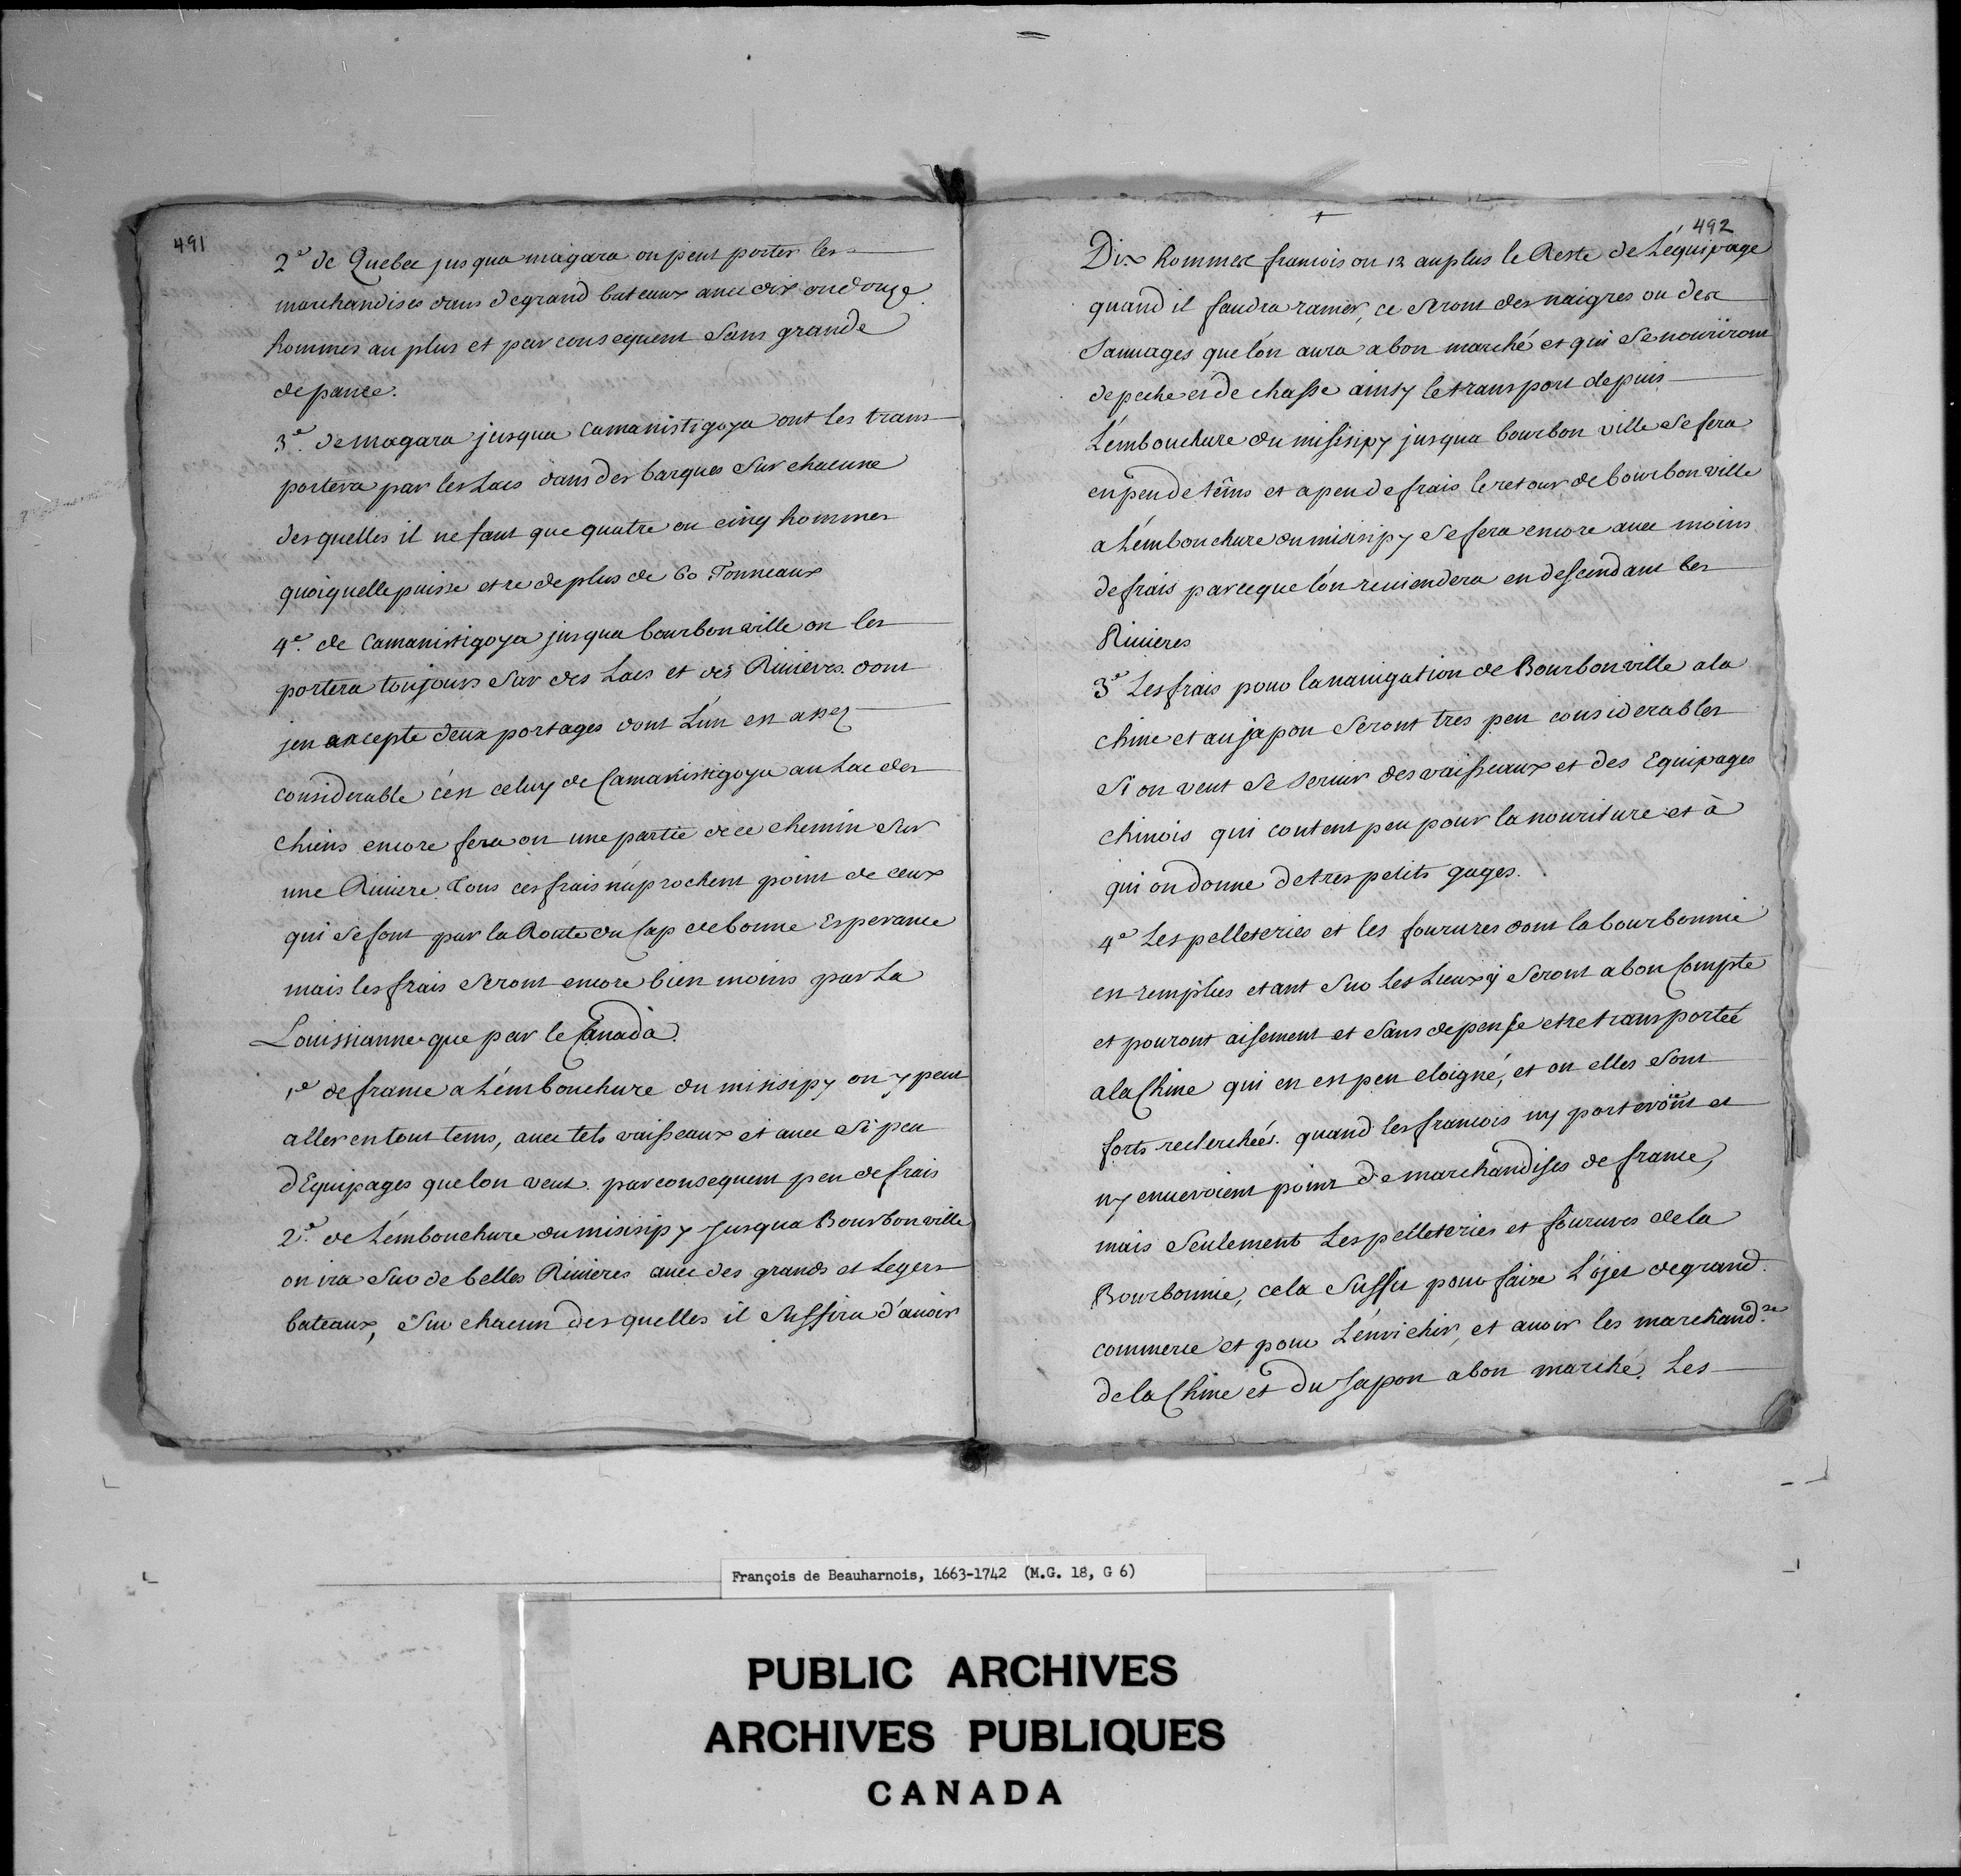 491
2.e de Quebec jusqua niagara on peut porter les
marchandises dans de grand bateaux avec dix ou douze
hommes au plus et par consequent sans grande
depance.
3.e de niagara jusqua Camanistigoya ont les trans-
portera par les Lacs dans des barques sur chacune
desquelles il ne faut que quatre ou cinq hommes
quoiquelle puisse etre de plus de 60 Tonneaux
4.e de Camanistigoya jusqua bourbonville on les
portera toujours sur des Lacs et des Rivieres dont
jen excepte deux portages dont L'un est assez
considerable c'est celuy de Camanistigoya au Lac des
chiens encore fera on une partie de ce chemin sur
une Riviere. tous ces frais n'aprochent point de ceux
qui se font par la Route du Cap de bonne Esperance
mais les frais seront encore bien moins par La
Louissianne que par le Canada.
1.e de france a L'embouchure du misisipy on y peut
aller en tout tems, avec tels vaisseaux et avec si peu
d'Equipages que lon veut. par consequent peu de frais
2.e de L'embouchure du misisipy Jusqua Bourbonville
on ira sur de belles Rivieres avec des grands et Legers
bateaux, sur chacun desquelles il suffira d'avoir
492
Dix hommes francois ou 12 au plus le Reste de L'équipage
quand il faudra ramer, ce seront des naigres ou des
sauvages que lón aura a bon marché et qui se nouriront
de peche et de chasse ainsy le transport depuis
L'embouchure du misisipy jusqua bourbon ville se fera
en peu de tems et a peu de frais le retour de bourbonville
a L'embouchure du misisipy se fera encore avec moins
de frais parceque lón reviendera en descendant les
Rivieres
3.e Les frais pour la navigation de Bourbonville a la
chine et au japon seront tres peu considerables
si on veut se servir des vaisseaux et des Equipages
chinois qui coutent peu pour la nouriture et à
qui on donne de tres petits gages.
4.e Les pelleteries et les fourures dont la bourbonnie
est remplies etant sur les Lieux y seront a bon Compte
et pouront aisement et sans depense etre transportée
a la Chine qui en est peu eloigné, et ou elles sont
forts recherchées. quand les francois ny porteroint et
ny enveroient point de marchandises de france,
mais seulement Les pelleteries et fourures de la
Bourbonnie, cela suffit pour faire L'ojet de grand
commerce et pour L'enrichir, et avoir les marchand.se
de la Chine et du Japon a bon marché. Les
François de Beauharnois, 1663-1742 (M.G. 18, G 6)
PUBLIC ARCHIVES
ARCHIVES PUBLIQUES
CANADA